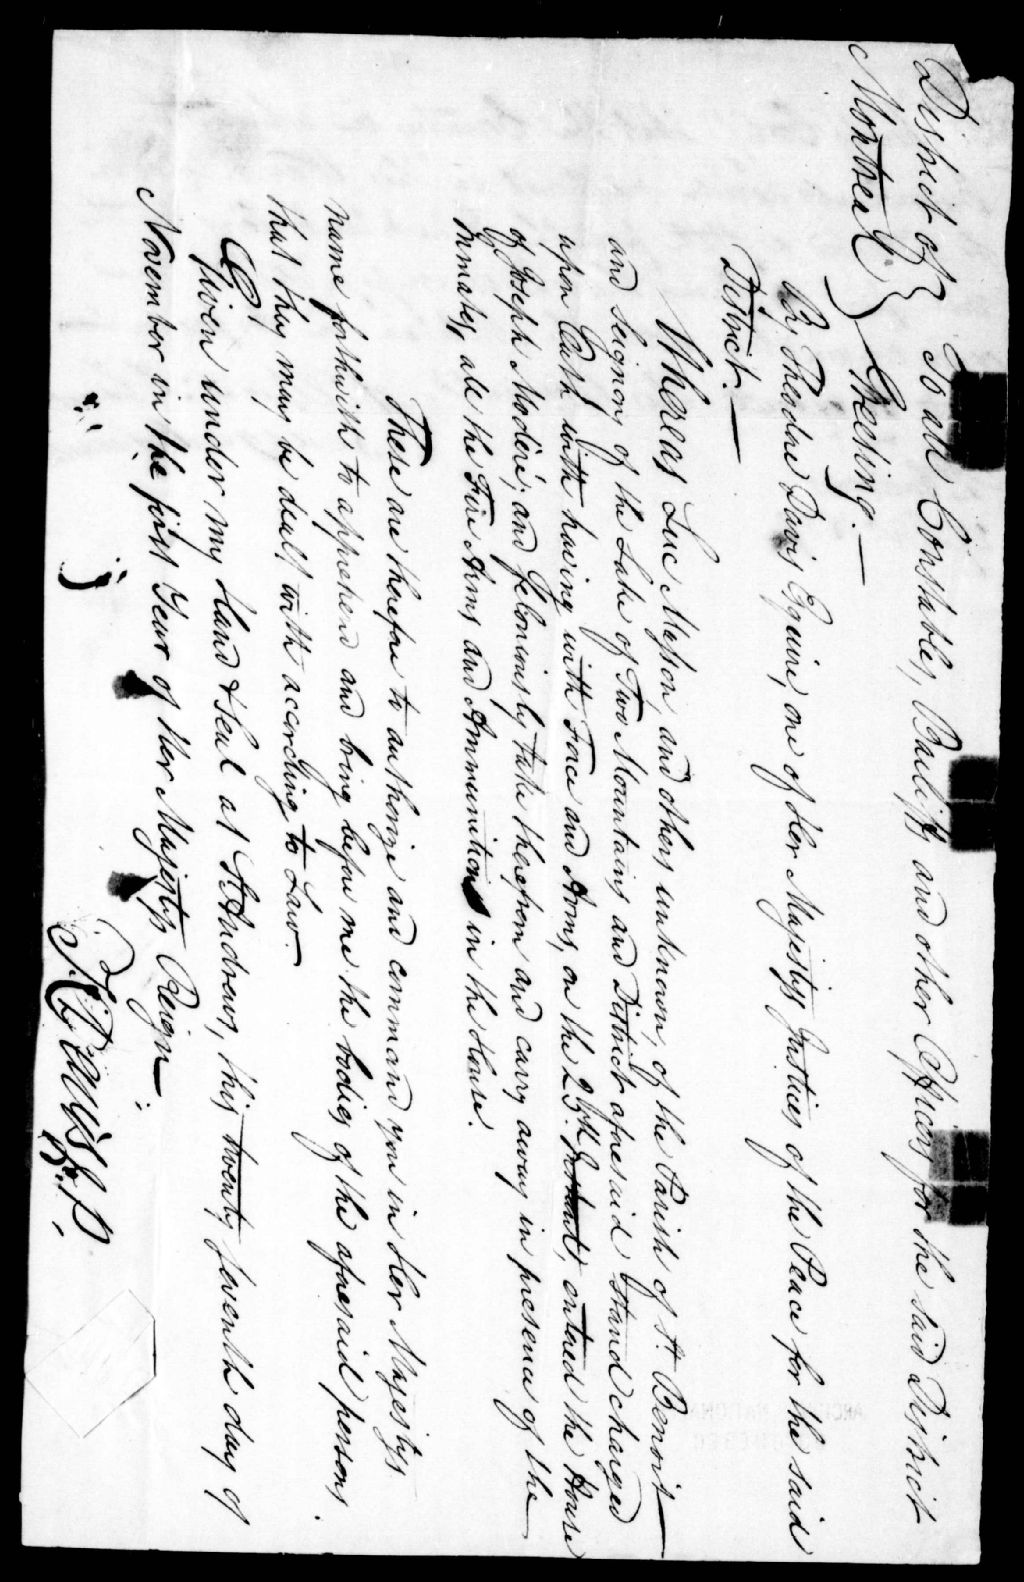 District of } To all Constables, Bailiffs and other Officers for the said District
Montreal } Greeting.—
By Theodore Davis Esquire, one of Her Majestys Justices of the Peace for the said
District.—
Whereas Luc Masson, and others unknown, of the Parish of St. Benoit—
and Seignory of the Lake of Two Mountains and District aforesaid stand charged
upon Oath with having with Force and Arms, on the 25th Instant, entered the House
of Joseph Moderé, and feloniously take therefrom and carry away in presence of the—
Inmates, all the Fire Arms and Ammunition in the House.
These are therefore to authorize and command you in Her Majestys
name forthwith to apprehend and bring before me the bodies of the aforesaid persons,
that they may be dealt with according to Law.—
Given under my Hand & Seal at St Andrews, this twenty seventh day of
November in the first Year of Her Majestys Reign—
Davis J.P.
ARCHIVES NATIONALES
QUEBEC